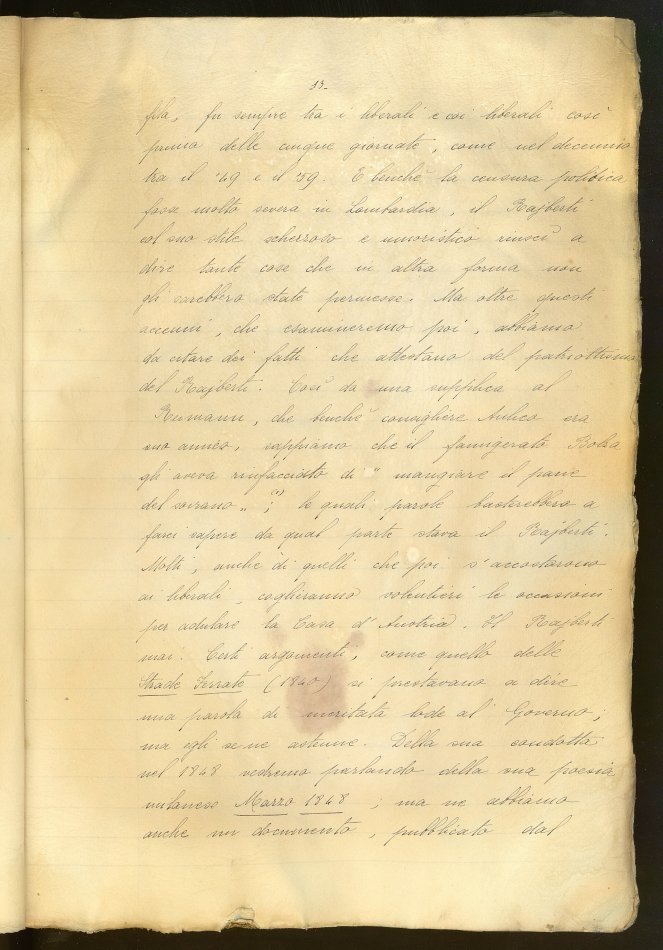 13.
fila, fu sempre tra i liberali e coi liberali così
prima delle cinque giornate, come nel decennio
tra il '49 e il '59. E benchè la censura politica
fosse molto severa in Lombardia, il Rajberti
col suo stile scherzoso e umoristico riuscì a
dire tante cose che in altra forma non
gli sarebbero state permesse. Ma oltre questi
accenni, che esamineremo poi, abbiamo
da citare dei fatti che attestano del patriottismo
del Rajberti. Così da una supplica al
che benchè consigliere Aulico era
suo amico, sappiamo che il famigerato Bolza
gli aveva rinfacciato di " mangiare il pane
del sovrano „ (1); le quali parole basterebbero a
farci sapere da qual parte stava il Rajberti.
Molti, anche di quelli che poi s'accostarono
ai liberali, coglieranno volentieri le occasioni
per adulare la Casa d'Austria. Il Rajberti
mai. Certi argomenti, come quello delle
Strade Ferrate (1840) si prestavano a dire
una parola di meritata lode al Governo;
ma egli se ne astenne. Della sua condotta
nel 1848 vedremo parlando della sua poesia
milanese Marzo 1848; ma ne abbiamo
anche un documento, pubblicato dal